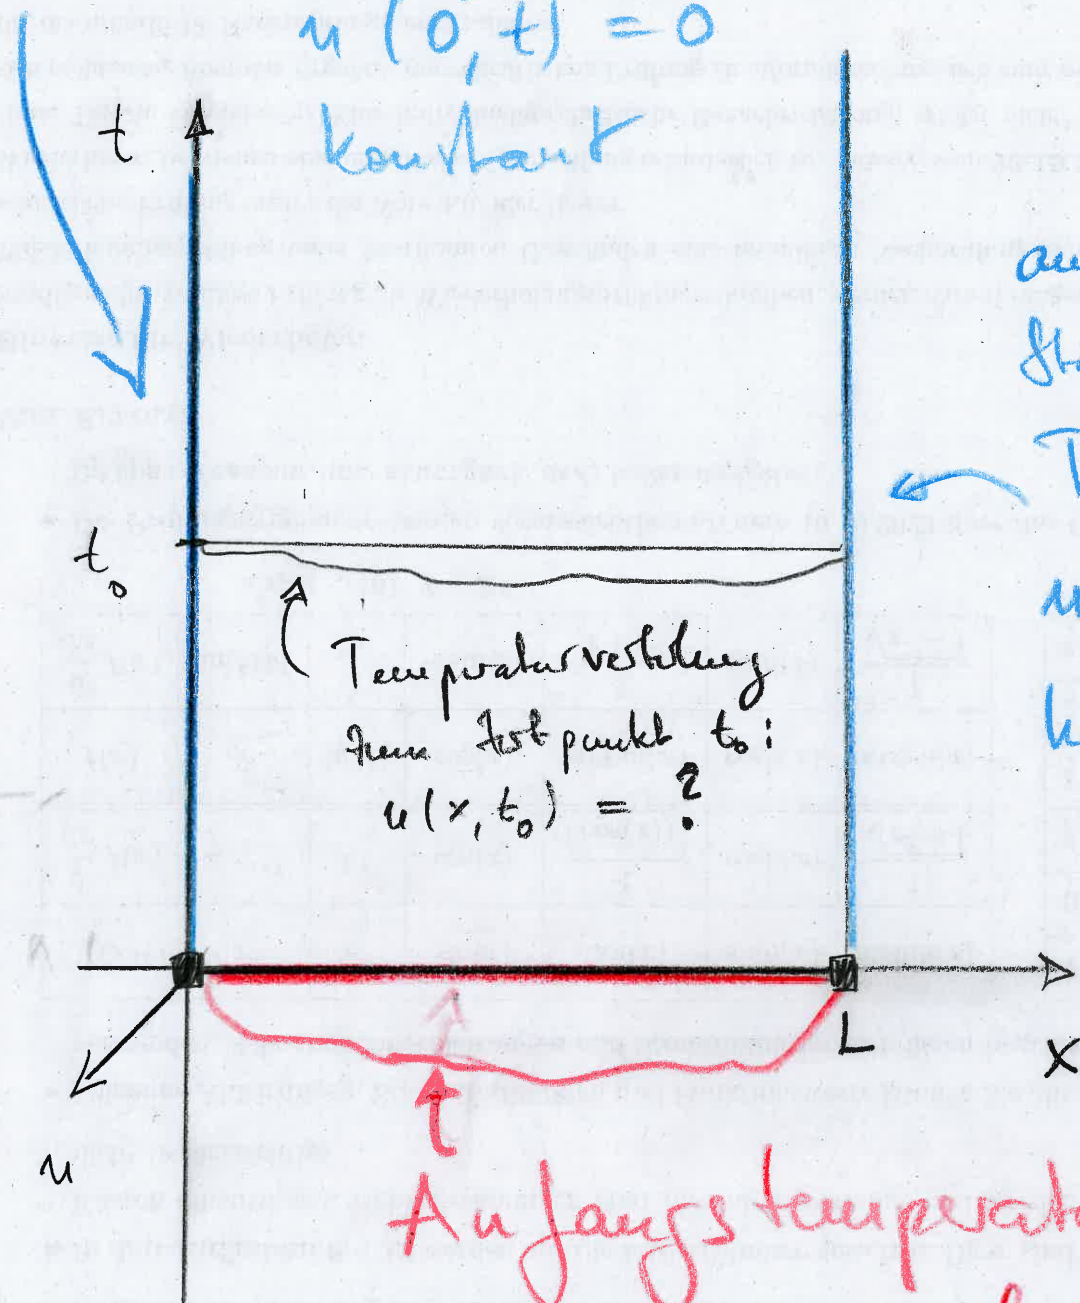 u(0,t) = 0
konstant
t
au
St
T
t₀
u
Temperaturverteilung
k
zum Zeitpunkt t₀:
u(x,t₀) = ?
L
x
u
Anfangstemperat